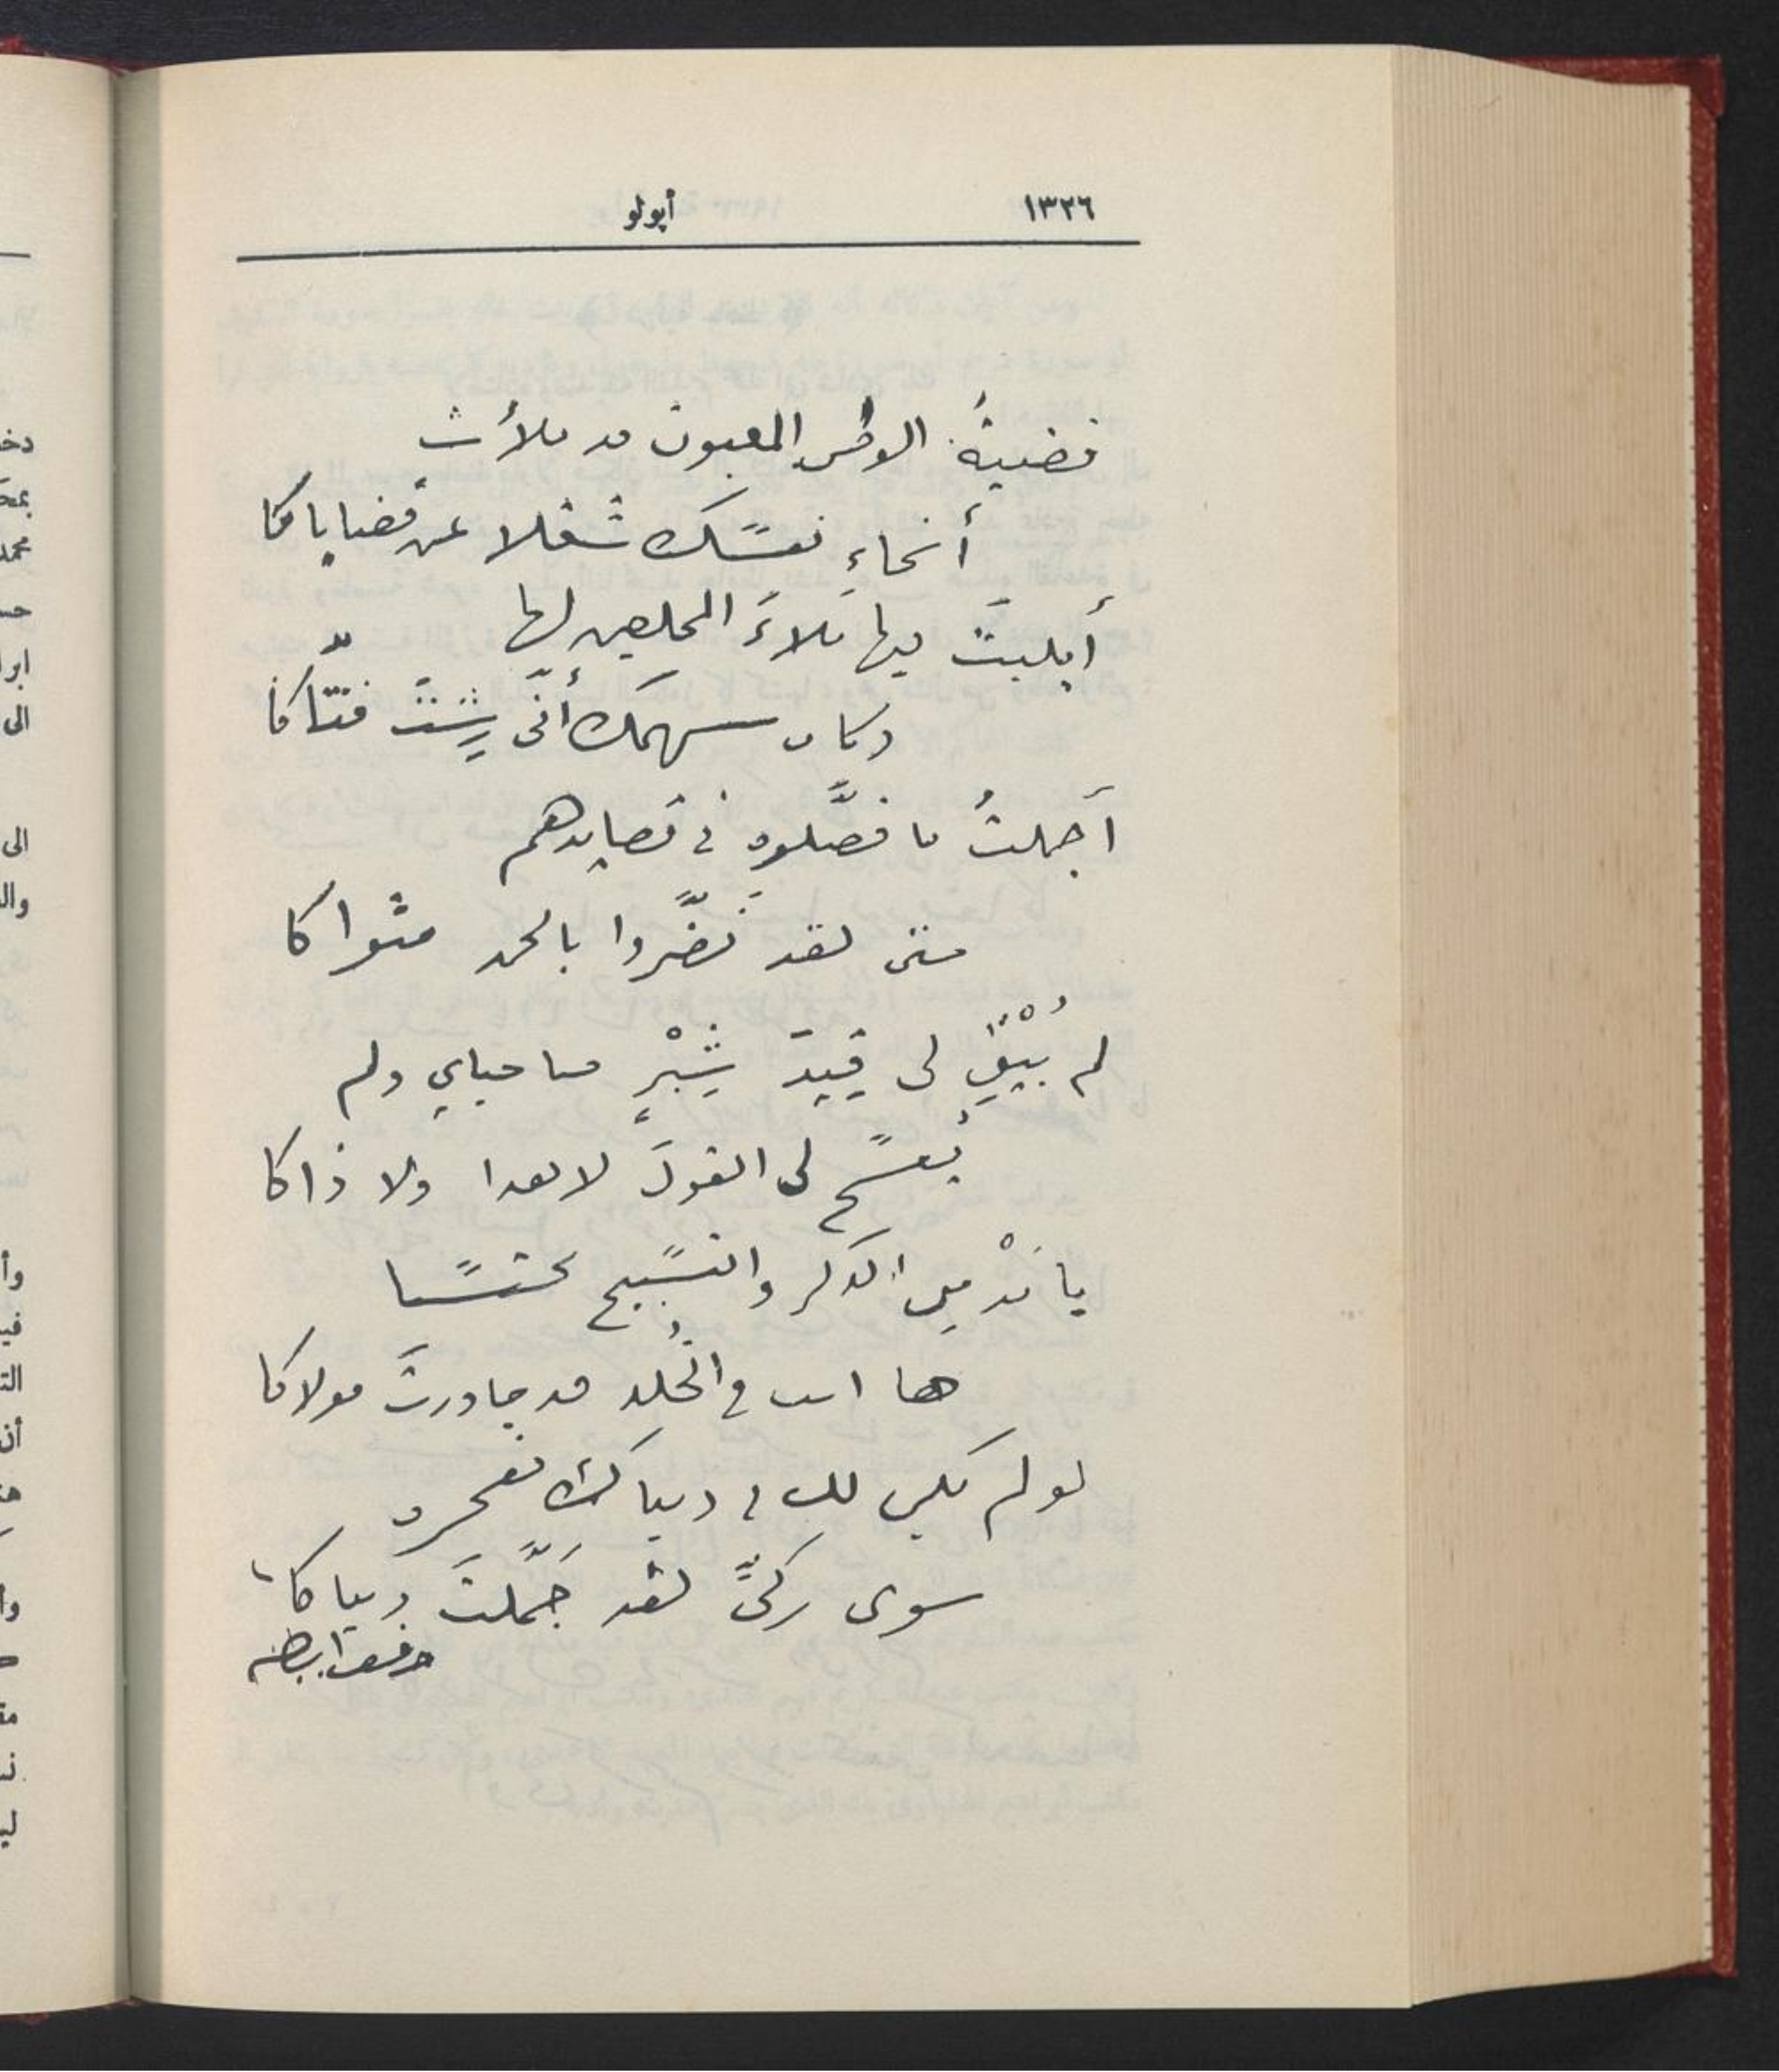 ١٣٢٦
أپولو
قضيةُ الوطن المغبون قد ملأتْ
أنحاءِ نفسك شغلا عن قضاياكا
أبليتَ فيها بلاءَ المخلصين لها
وكان سهمك أنّى رِشتَ فتّاكا
أجملتُ ما فصَّلوه في قصايدهم
حتى لقد نَضَّروا بالحمد مثواكا
لم يُبْقِ لى قِيدَ شِبْرٍ صاحباي ولم
يُفسح لى القولَ لا هذا ولا ذاكا
يا مُدْمِن الذكر والتسبيح محتسبا
ها انت في الخُلد قد جاورتَ مولاكا
لو لم يكن لك في دنياك مفخرة
سوى زكىٍّ لقد جَمَّلتَ دنياكا
حافظ ابراهيم
دخ
محمد
ابرا
الى
الى
وال
وأ
أن
وا